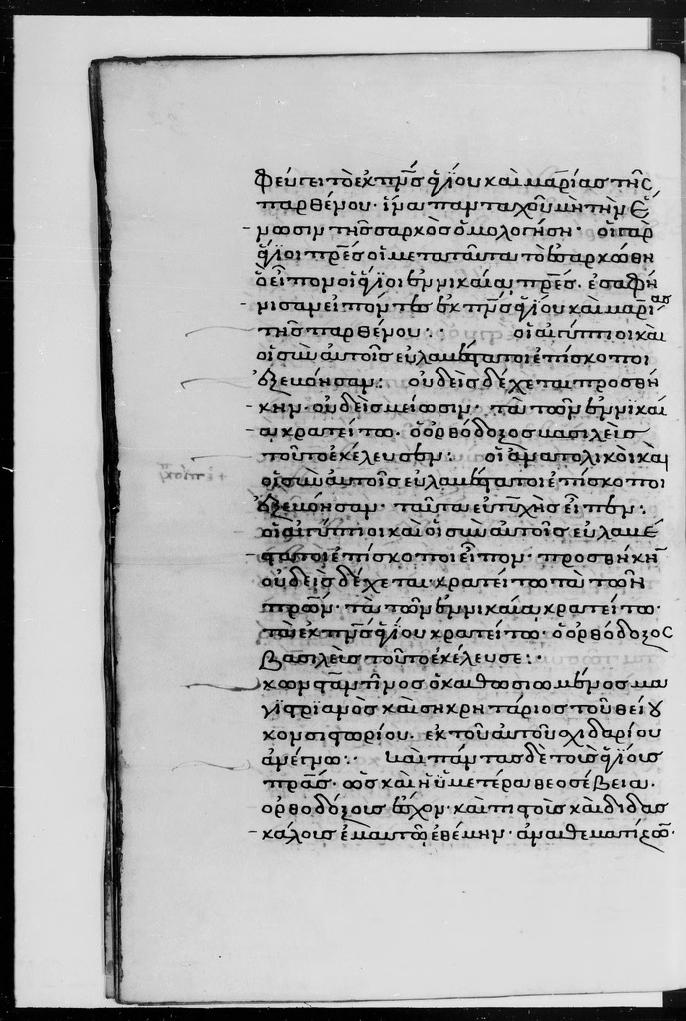 φεύγει τὸ ἐκ πνς ἁγίου καὶ μαρίας τῆς
παρθένου· ἵνα πανταχοῦ μὴ τὴν ἕ
νωσιν τῆς σαρκὸς ὁμολογήση· οἱ γὰρ
ἅγιοι πρες οἱ μετα ταῦτα τὸ ἐσαρκώθη
ὃ εἶπον οἱ ἅγιοι ἐν νικαία πρες. ἐσαφή
νισαν εἰπόντες ἐκ πνς ἁγίου καὶ μαρίας
τῆς παρθένου:· οἱ αἰγύπτιοι καὶ
οἱ σὺν αὐτοῖς εὐλαβέστατοι ἐπίσκοποι
ἐξεβόησαν: οὐδεὶς δέχεται προσθή
κην· οὐδεὶς μείωσιν· τὰ τῶν ἐν νικαί
α κρατείτω. ὁ ὀρθόδοξος βασιλεὺς
τοῦτο ἐκέλευσεν:. οἱ ἀνατολικοὶ καὶ
οἱ σὺν αὐτοῖς εὐλαβέστατοι ἐπίσκοποι
ἐξεβόησαν· ταῦτα εὐτυχὴς εἶπεν:.
οἱ αἰγύπτιοι καὶ οἱ σὺν αὐτοῖς εὐλαβέ
στατοι ἐπίσκοποι εἶπον· προσθήκην
οὐδεὶς δέχεται· κρατείτω τὰ τῶν
πρων· τὰ τῶν ἐν νικαία κρατείτω·
τὰ ἐκ πνς ἁγίου κρατείτω· ὁ ὀρθόδοξος
βασιλεὺς τοῦτο ἐκέλευσε:·
κωνσταντῖνος ὁ καθωσιωμένος μα
γιστριανὸς καὶ σηκρητάριος τοῦ θείου
κονσιστωρίου. ἐκ τοῦ αὐτοῦ σχιδαρίου
ἀνέγνω:· καὶ πάντας δὲ τοὺς ἁγίους
πρας· ὡς καὶ ἡ ὑμετέρα θεοσέβεια.
ὀρθοδόξους ἔσχον· καὶ πιστοὺς καὶ διδασ
κάλους ἐμαυτῶ ἐθέμην· ἀναθεματίζω·